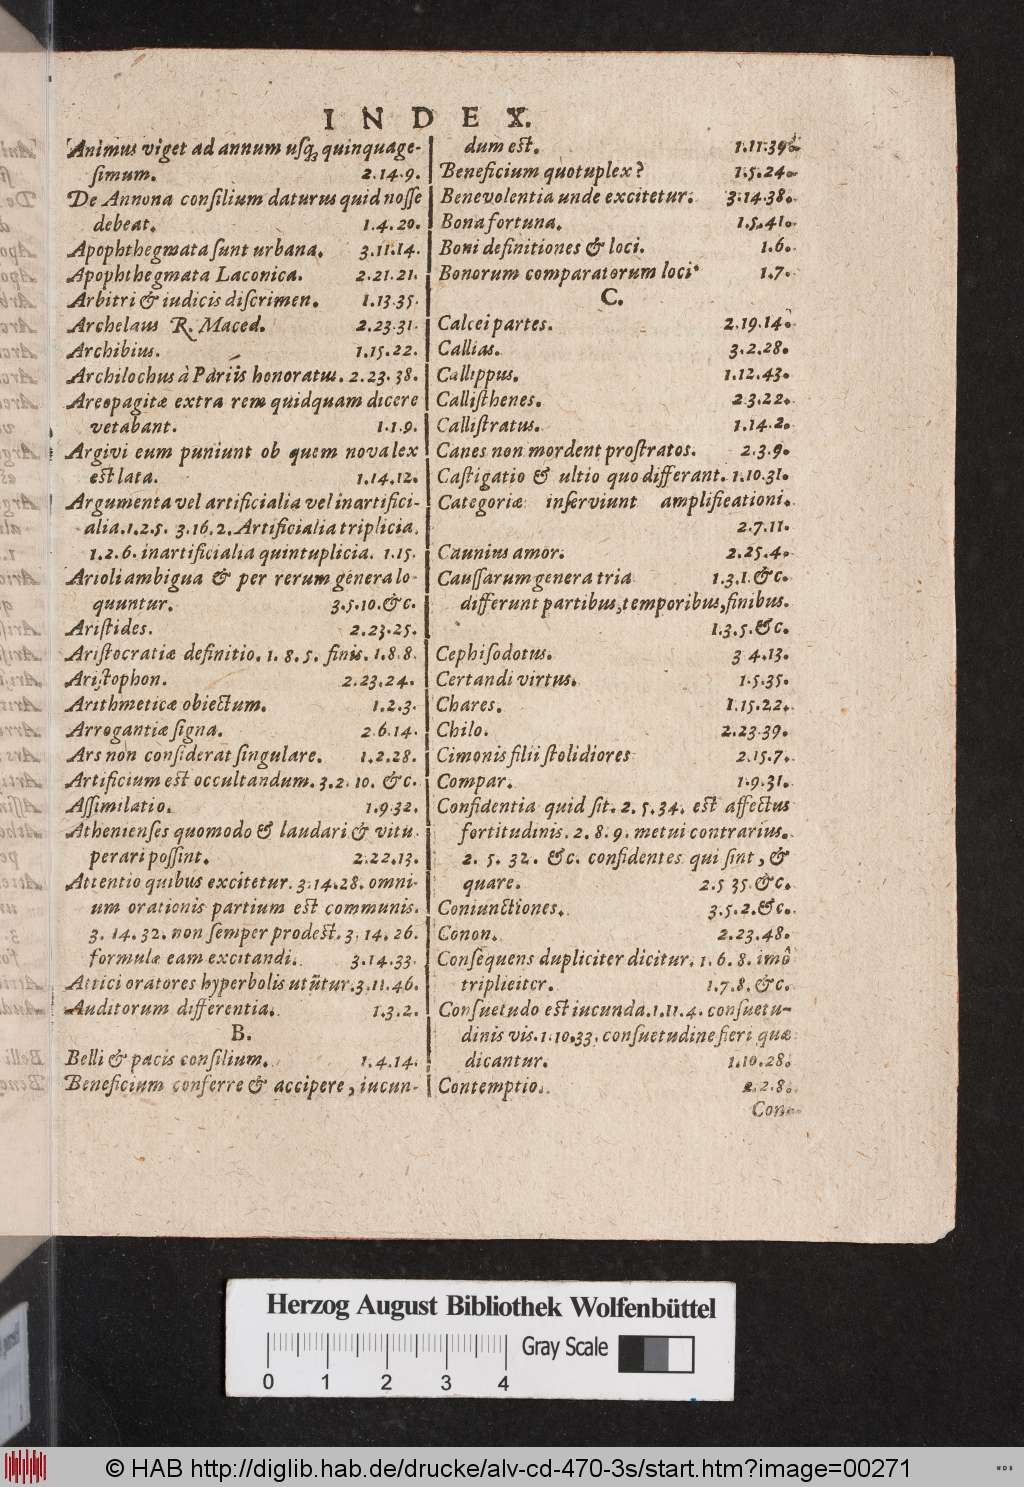 INDEX.
Animus viget ad annum usq; quinquage-
simum. 2.14.9.
De Annona consilium daturus quid nosse
debeat. 1.4.20.
Apophthegmata sunt urbana. 3.11.14.
Apophthegmata Laconica. 2.21.21.
Arbitri & iudicis discrimen. 1.13.35.
Archelaus R. Maced. 2.23.31.
Archibius. 1.15.22.
Archilochus à Pariis honoratus. 2.23.38.
Areopagitæ extra rem quidquam dicere
vetabant. 1.1.9.
Argivi eum puniunt ob quem nova lex
est lata. 1.14.12.
Argumenta vel artificialia vel inartifici-
alia. 1.2.5. 3.16.2. Artificialia triplicia.
1.2.6. inartificialia quintuplicia. 1.15.
Arioli ambigua & per rerum genera lo-
quuntur. 3.5.10.&c.
Aristides. 2.23.25.
Aristocratiæ definitio. 1.8.5. finis. 1.8.8.
Aristophon. 2.23.24.
Arithmeticæ obiectum. 1.2.3.
Arrogantiæ signa. 2.6.14.
Ars non considerat singulare. 1.2.28.
Artificium est occultandum. 3.2.10. &c.
Assimilatio. 1.9.32.
Athenienses quomodo & laudari & vitu
perari possint. 2.22.13.
Attentio quibus excitetur. 3.14.28. omni-
um orationis partium est communis.
3.14.32. non semper prodest. 3.14.26.
formulæ eam excitandi. 3.14.33.
Attici oratores hyperbolis utūtur. 3.11.46.
Auditorum differentia. 1.3.2.
B.
Belli & pacis consilium. 1.4.14.
Beneficium conferre & accipere, iucun-
dum est. 1.11.39.
Beneficium quotuplex? 1.5.24.
Benevolentia unde excitetur. 3.14.38.
Bona fortuna. 1.5.41.
Boni definitiones & loci. 1.6.
Bonorum comparatorum loci. 1.7.
C.
Calcei partes. 2.19.14.
Callias. 3.2.28.
Callippus. 1.12.43.
Callisthenes. 2.3.22.
Callistratus. 1.14.2.
Canes non mordent prostratos. 2.3.9.
Castigatio & ultio quo differant. 1.10.31.
Categoriæ inserviunt amplificationi.
2.7.11.
Caunius amor. 2.25.4.
Caussarum genera tria 1.3.1.&c.
differunt partibus, temporibus, finibus.
1.3.5.&c.
Cephisodotus. 3 4.13.
Certandi virtus. 1.5.35.
Chares. 1.15.22.
Chilo. 2.23.39.
Cimonis filii stolidiores 2.15.7.
Compar. 1.9.31.
Confidentia quid sit. 2.5.34. est affectus
fortitudinis. 2.8.9. metui contrarius.
2.5.32. &c. confidentes qui sint, &
quare. 2.5 35.&c.
Coniunctiones. 3.5.2.&c.
Conon. 2.23.48.
Consequens dupliciter dicitur. 1.6.8. imò
tripliciter. 1.7.8.&c.
Consuetudo est iucunda. 1.11.4. consuetu-
dinis vis. 1.10.33. consuetudine fieri quæ
dicantur. 1.10.28.
Contemptio. 2.2.8.
Con-
Herzog August Bibliothek Wolfenbüttel
Gray Scale
0 1 2 3 4
© HAB http://diglib.hab.de/drucke/alv-cd-470-3s/start.htm?image=00271